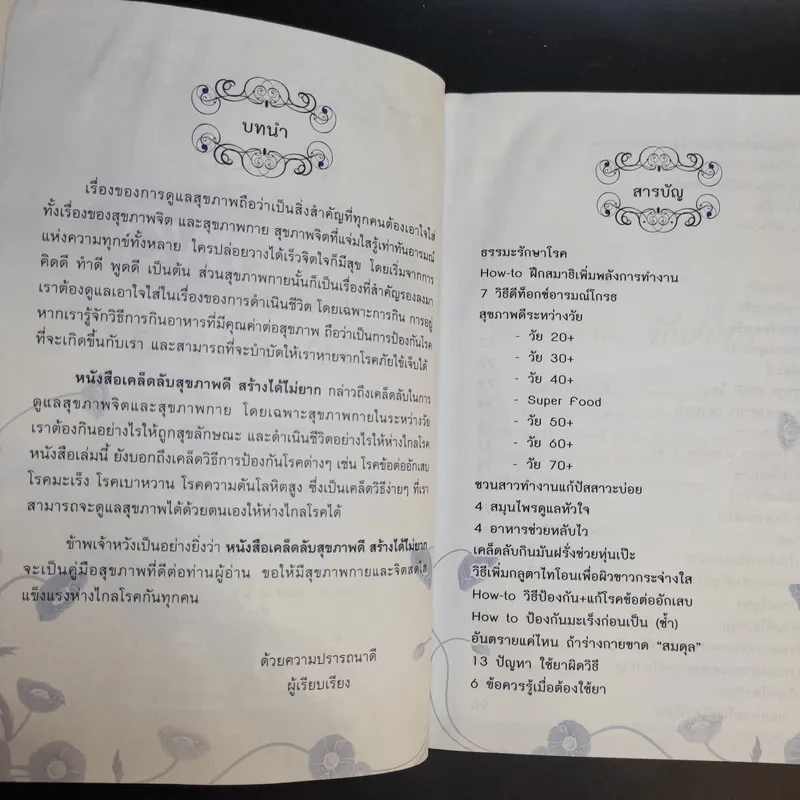 บทนำ
เรื่องของการดูแลสุขภาพถือว่าเป็นสิ่งสำคัญที่ทุกคนต้องเอาใจใส่
ทั้งเรื่องของสุขภาพจิต และสุขภาพกาย สุขภาพจิตที่แจ่มใสรู้เท่าทันอารมณ์
แห่งความทุกข์ทั้งหลาย ใครปล่อยวางได้เร็วจิตใจก็มีสุข โดยเริ่มจากการ
คิดดี ทำดี พูดดี เป็นต้น ส่วนสุขภาพกายนั้นก็เป็นเรื่องที่สำคัญรองลงมา
เราต้องดูแลเอาใจใส่ในเรื่องของการดำเนินชีวิต โดยเฉพาะการกิน การอยู่
หากเรารู้จักวิธีการกินอาหารที่มีคุณค่าต่อสุขภาพ ถือว่าเป็นการป้องกันโรค
ที่จะเกิดขึ้นกับเรา และสามารถที่จะบำบัดให้เราหายจากโรคภัยไข้เจ็บได้
หนังสือเคล็ดลับสุขภาพดี สร้างได้ไม่ยาก กล่าวถึงเคล็ดลับในการ
ดูแลสุขภาพจิตและสุขภาพกาย โดยเฉพาะสุขภาพกายในระหว่างวัย
เราต้องกินอย่างไรให้ถูกสุขลักษณะ และดำเนินชีวิตอย่างไรให้ห่างไกลโรค
หนังสือเล่มนี้ ยังบอกถึงเคล็ดวิธีการป้องกันโรคต่างๆ เช่น โรคข้อต่ออักเสบ
โรคมะเร็ง โรคเบาหวาน โรคความดันโลหิตสูง ซึ่งเป็นเคล็ดวิธีง่ายๆ ที่เรา
สามารถจะดูแลสุขภาพได้ด้วยตนเองให้ห่างไกลโรคได้
ข้าพเจ้าหวังเป็นอย่างยิ่งว่า หนังสือเคล็ดลับสุขภาพดี สร้างได้ไม่ยาก
จะเป็นคู่มือสุขภาพที่ดีต่อท่านผู้อ่าน ขอให้มีสุขภาพกายและจิตสดใส
แข็งแรงห่างไกลโรคกันทุกคน
ด้วยความปรารถนาดี
ผู้เรียบเรียง
สารบัญ
ธรรมะรักษาโรค
How-to ฝึกสมาธิเพิ่มพลังการทำงาน
7 วิธีดีท็อกซ์อารมณ์โกรธ
สุขภาพดีระหว่างวัย
- วัย 20+
- วัย 30+
- วัย 40+
- Super Food
- วัย 50+
- วัย 60+
- วัย 70+
ชวนสาวทำงานแก้ปัสสาวะบ่อย
4 สมุนไพรดูแลหัวใจ
4 อาหารช่วยหลับไว
เคล็ดลับกินมันฝรั่งช่วยหุ่นเป๊ะ
วิธีเพิ่มกลูตาไทโอนเพื่อผิวขาวกระจ่างใส
How-to วิธีป้องกัน+แก้โรคข้อต่ออักเสบ
How to ป้องกันมะเร็งก่อนเป็น (ซ้ำ)
อันตรายแค่ไหน ถ้าร่างกายขาด “สมดุล”
13 ปัญหา ใช้ยาผิดวิธี
6 ข้อควรรู้เมื่อต้องใช้ยา